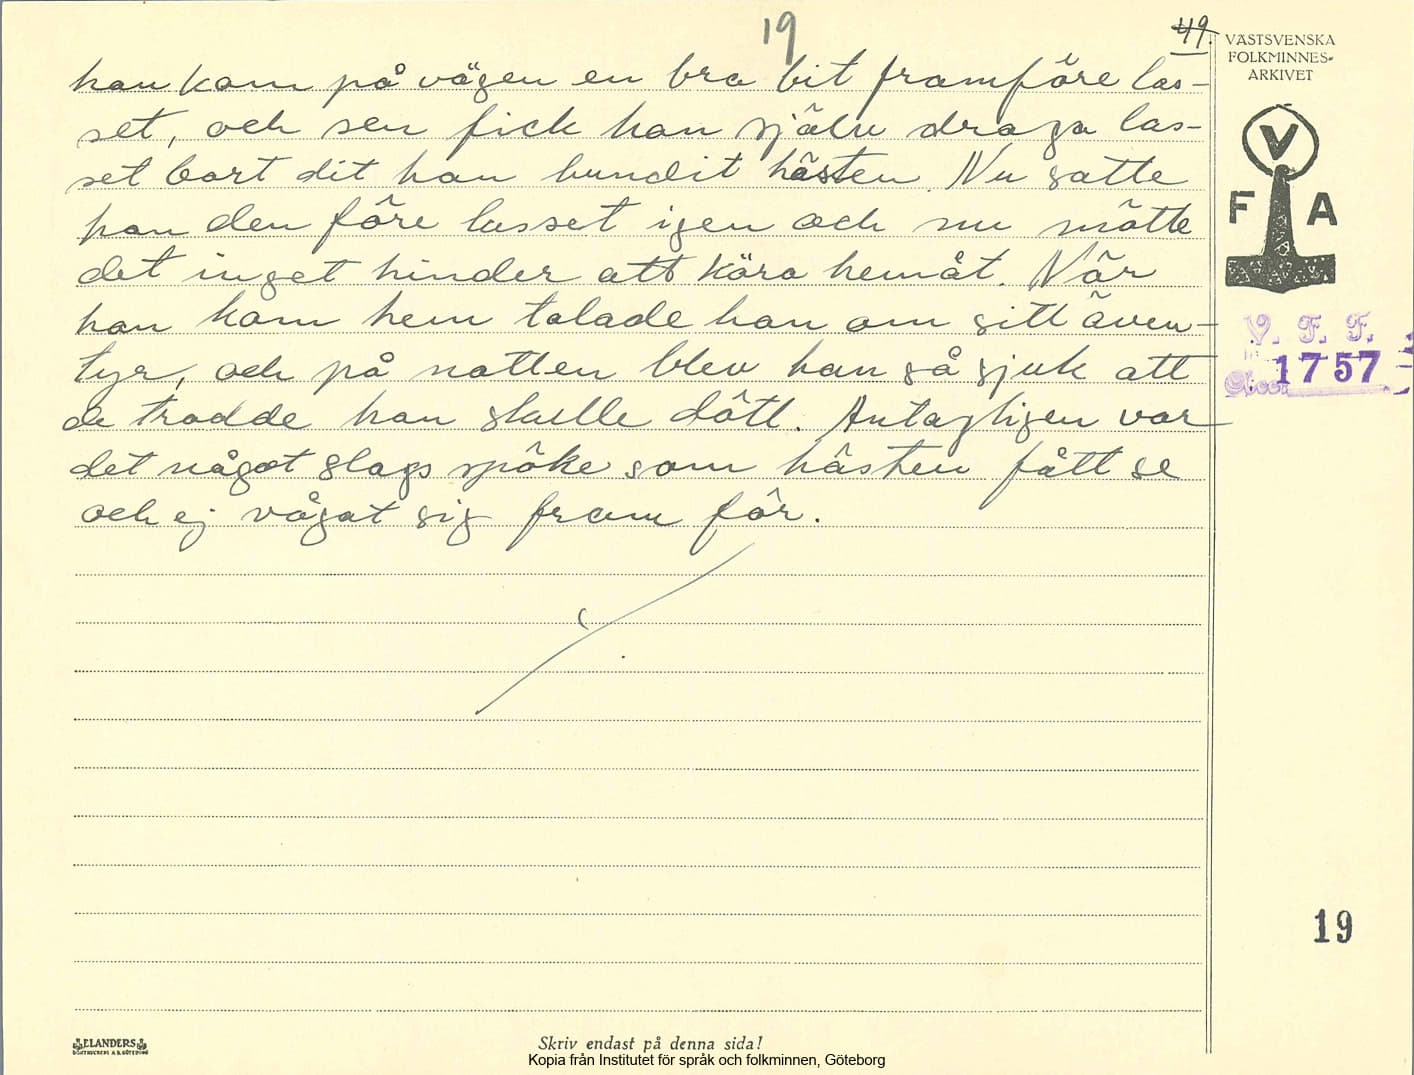 19
49.
VÄSTSVENSKA
FOLKMINNES-
ARKIVET
han kom på vägen en bra bit framföre las-
set, och sen fick han själv draga las-
set bort dit han bundit hästen. Nu satte
han den före lasset igen och nu mötte
det inget hinder att köra hemåt. När
han kom hem talade han om sitt även-
tyr, och på natten blev han så sjuk att
de trodde han skulle dött. Antagligen var
det något slags spöke som hästen fått se
och ej vågat sig fram för.
V
F A
V. F. F.
1757
19
ELANDERS
Skriv endast på denna sida!
Kopia från Institutet för språk och folkminnen, Göteborg